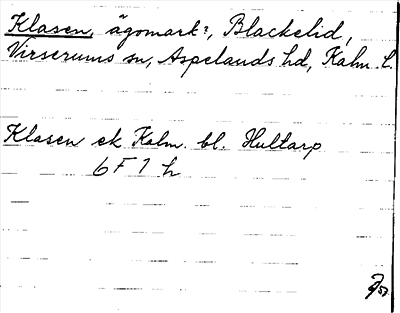 Klasen, ägomark?, Blackelid,
Virserums sn, Aspelands hd, Kalm. l.
Klasen ek Kalm. bl. Hultarp
6 F 7 h